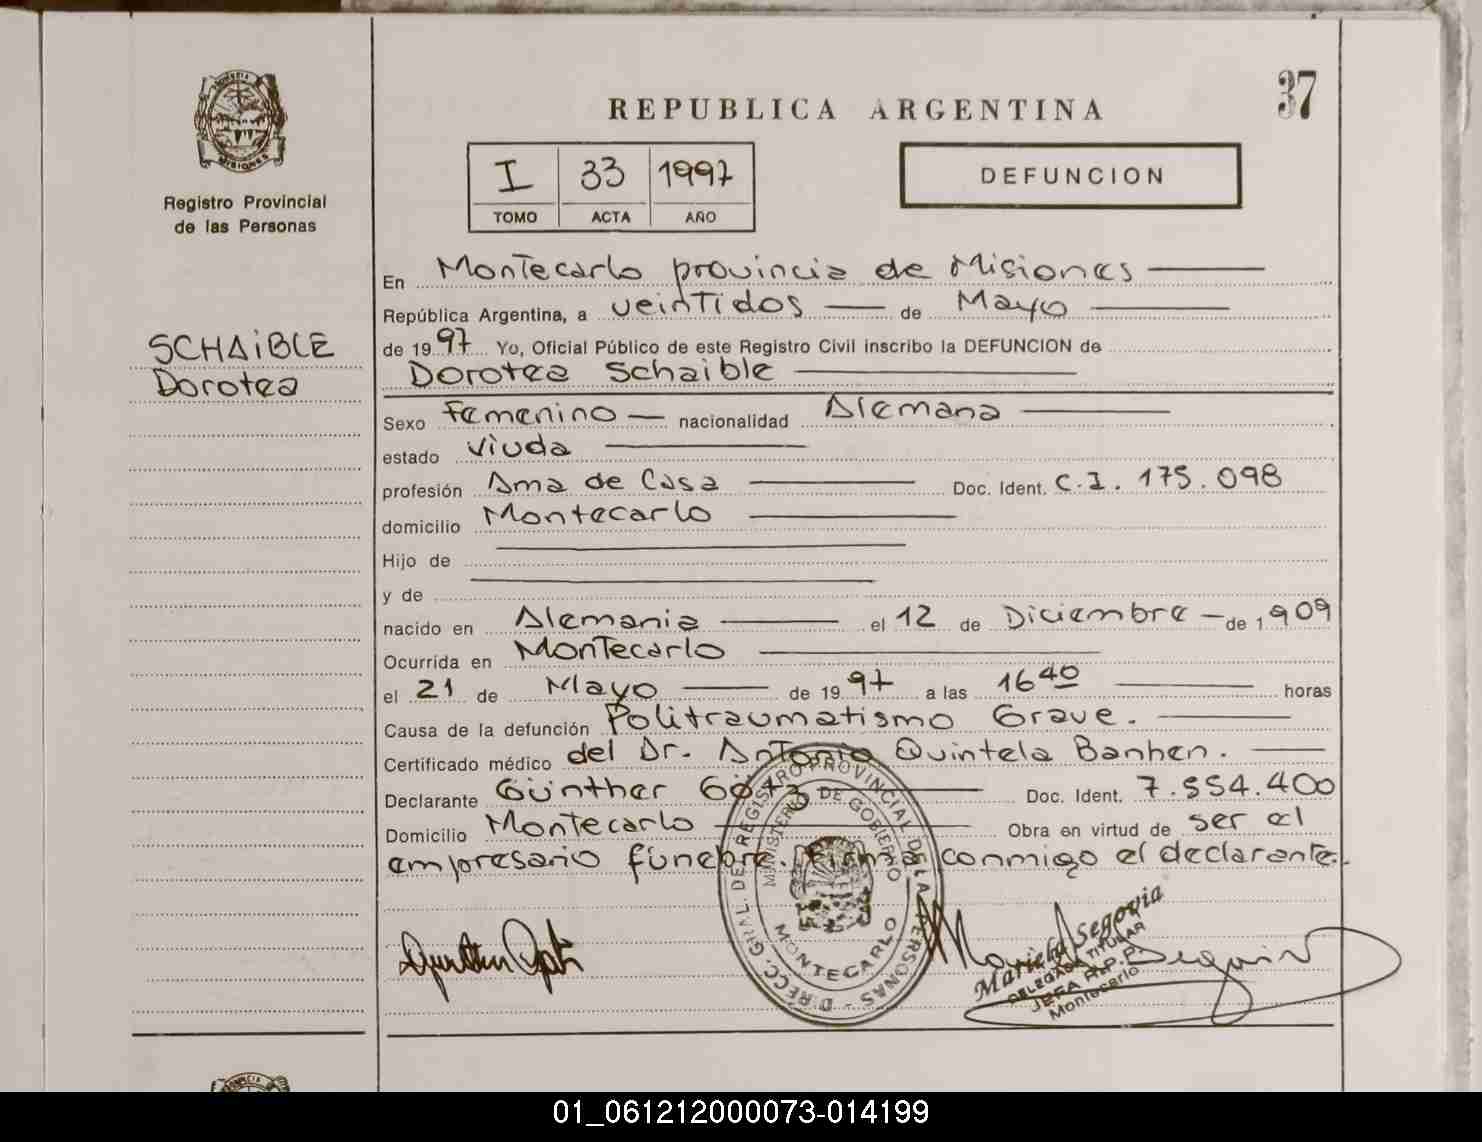 37
REPUBLICA ARGENTINA
PROVINCIA DE
MISIONES
Registro Provincial
de las Personas
I 33 1997
TOMO ACTA AÑO
DEFUNCION
SCHAiBLE
Dorotea
En Montecarlo provincia de Misiones
República Argentina, a veintidos de Mayo
de 1997 Yo, Oficial Público de este Registro Civil inscribo la DEFUNCION de
Dorotea Schaible
Sexo Femenino nacionalidad Alemana
estado viuda
profesión Ama de Casa Doc. Ident. C.I. 175.098
domicilio Montecarlo
Hijo de
y de
nacido en Alemania el 12 de Diciembre de 1909
Ocurrida en Montecarlo
el 21 de Mayo de 1997 a las 1640 horas
Causa de la defunción Politraumatismo Grave.
Certificado médico del Dr. Antonio Quintela Banhen.
Declarante Günther Götz Doc. Ident. 7.554.400
Domicilio Montecarlo Obra en virtud de ser el
empresario fúnebre. Firma conmigo el declarante.
DIRECC. GRAL. DEL REGISTRO PROVINCIAL DE LA PERSONAS
MINISTERIO DE GOBIERNO
MONTECARLO
Mariela Segovia
DELEGADA TITULAR
JEFA R.P.P.
Montecarlo
01_061212000073-014199